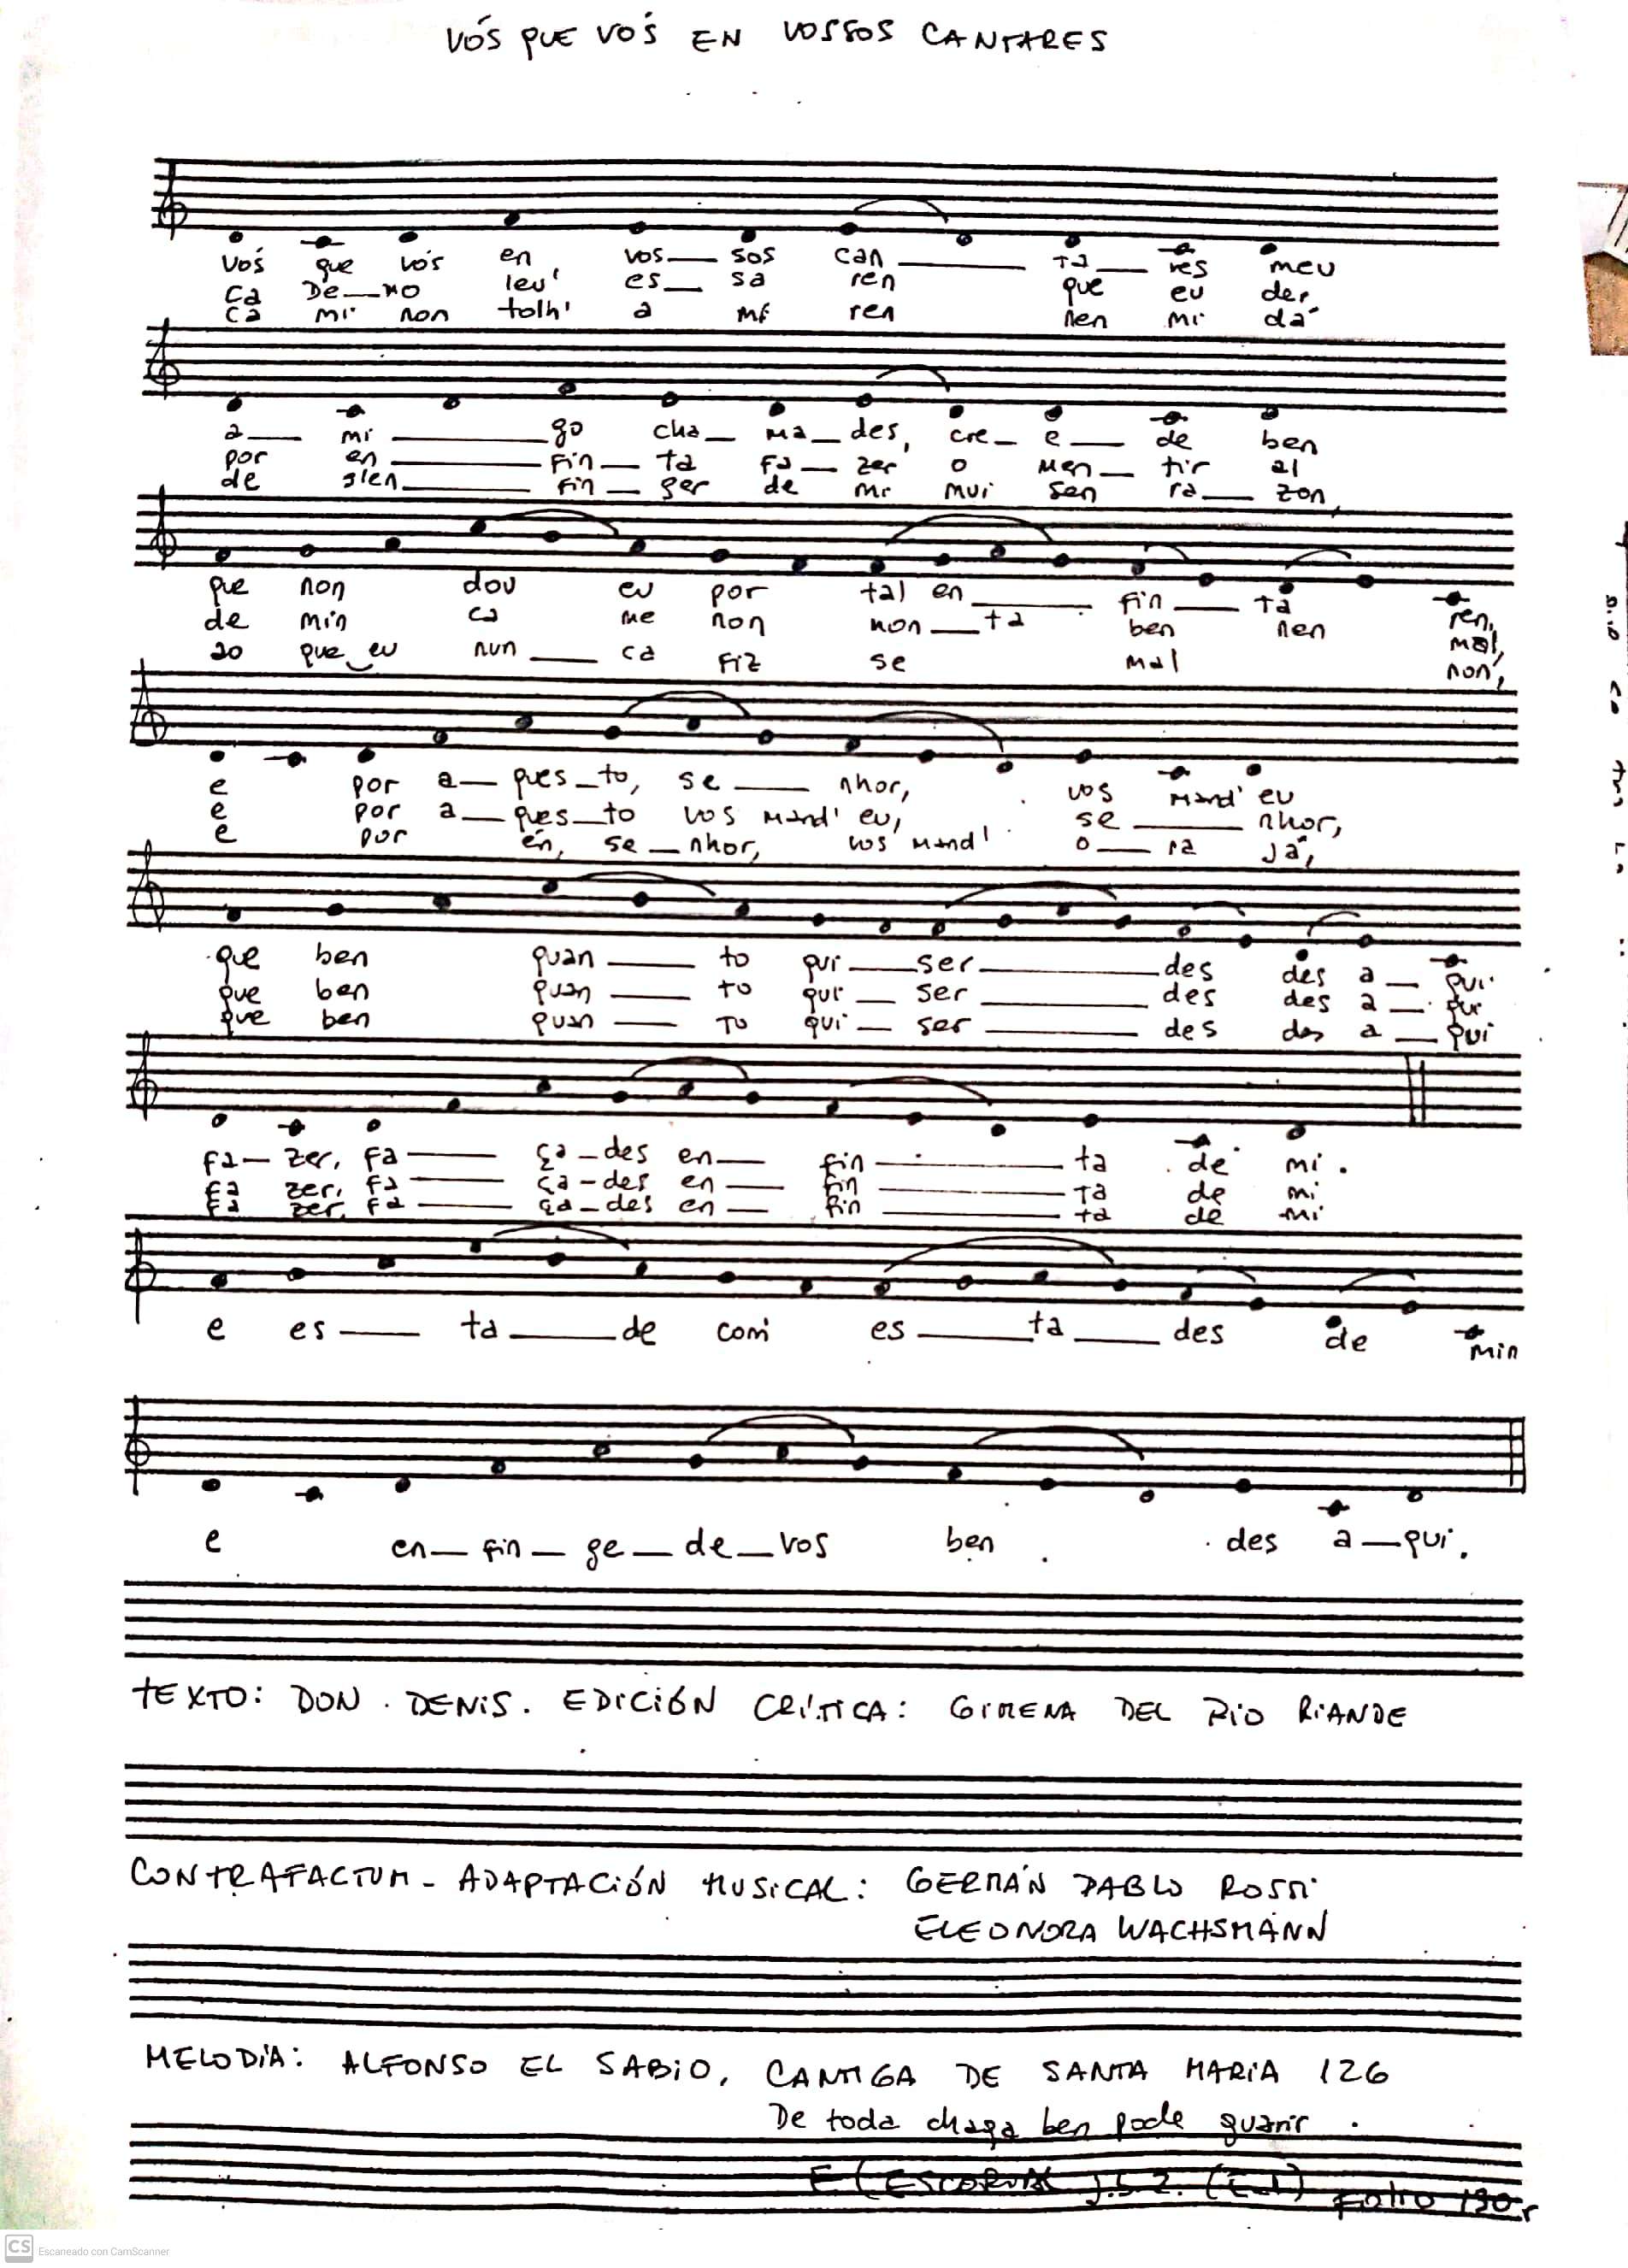 VÓS QUE VÓS EN VOSSOS CANTARES
Vós que vós en vos__sos can____ta__res meu
Ca De__mo lev' es__sa ren que eu der
Ca mi non tolh' a mi ren nen mi dá
a__mi____go cha_ma_des, cre_e__de ben
por en____fin_ta fa_zer o men_tir al
de s'en____fin_ger de mi mui sen ra__zon,
que non dou eu por tal en____fin__ta ren,
de min ca me non mon__ta ben nen mal,
ao que eu nun__ca fiz se mal non,
e por a_ques_to, se__nhor, vos mand' eu
e por a_ques_to vos mand' eu, se__nhor,
e por én, se_nhor, vos mand' o__ra já,
que ben quan__to qui__ser____des des a_qui
que ben quan__to qui_ser____des des a_qui
que ben quan__to qui_ser____des des a_qui
fa_zer, fa__ça_des en__fin____ta de mi.
fa zer, fa__ça_des en__fin____ta de mi
fa zer, fa__ça_des en__fin____ta de mi
e es__ta__de com es__ta__des de min
e en_fin_ge_de_vos ben des a_qui.
TEXTO: DON DENIS. EDICIÓN CRÍTICA: GIMENA DEL RIO RIANDE
CONTRAFACTUM - ADAPTACIÓN MUSICAL: GERMÁN PABLO ROSSI
ELEONORA WACHSMANN
MELODÍA: ALFONSO EL SABIO, CANTIGA DE SANTA MARIA 126
De toda chaga ben pode guarir
E (ESCORIAL J.b.2. (E1) Folio 130r
CS Escaneado con CamScanner